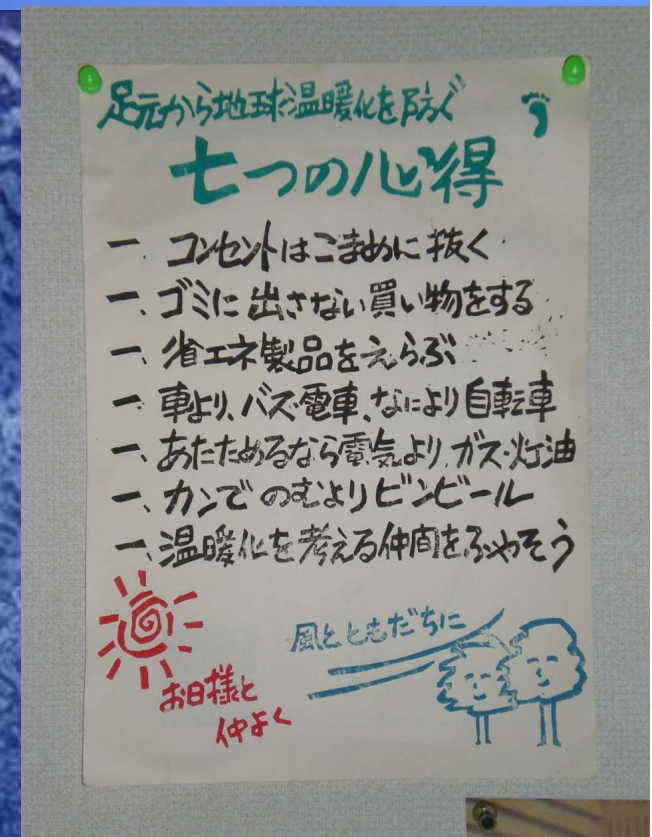 足元から地球温暖化を防ぐ
七つの心得
一、コンセントはこまめに抜く
一、ゴミに出さない買い物をする
一、省エネ製品をえらぶ
一、車より、バス・電車、なにより自転車
一、あたためるなら電気より、ガス・灯油
一、カンでのむよりビンビール
一、温暖化を考える仲間をふやそう
風とともだちに
お日様と
仲よく